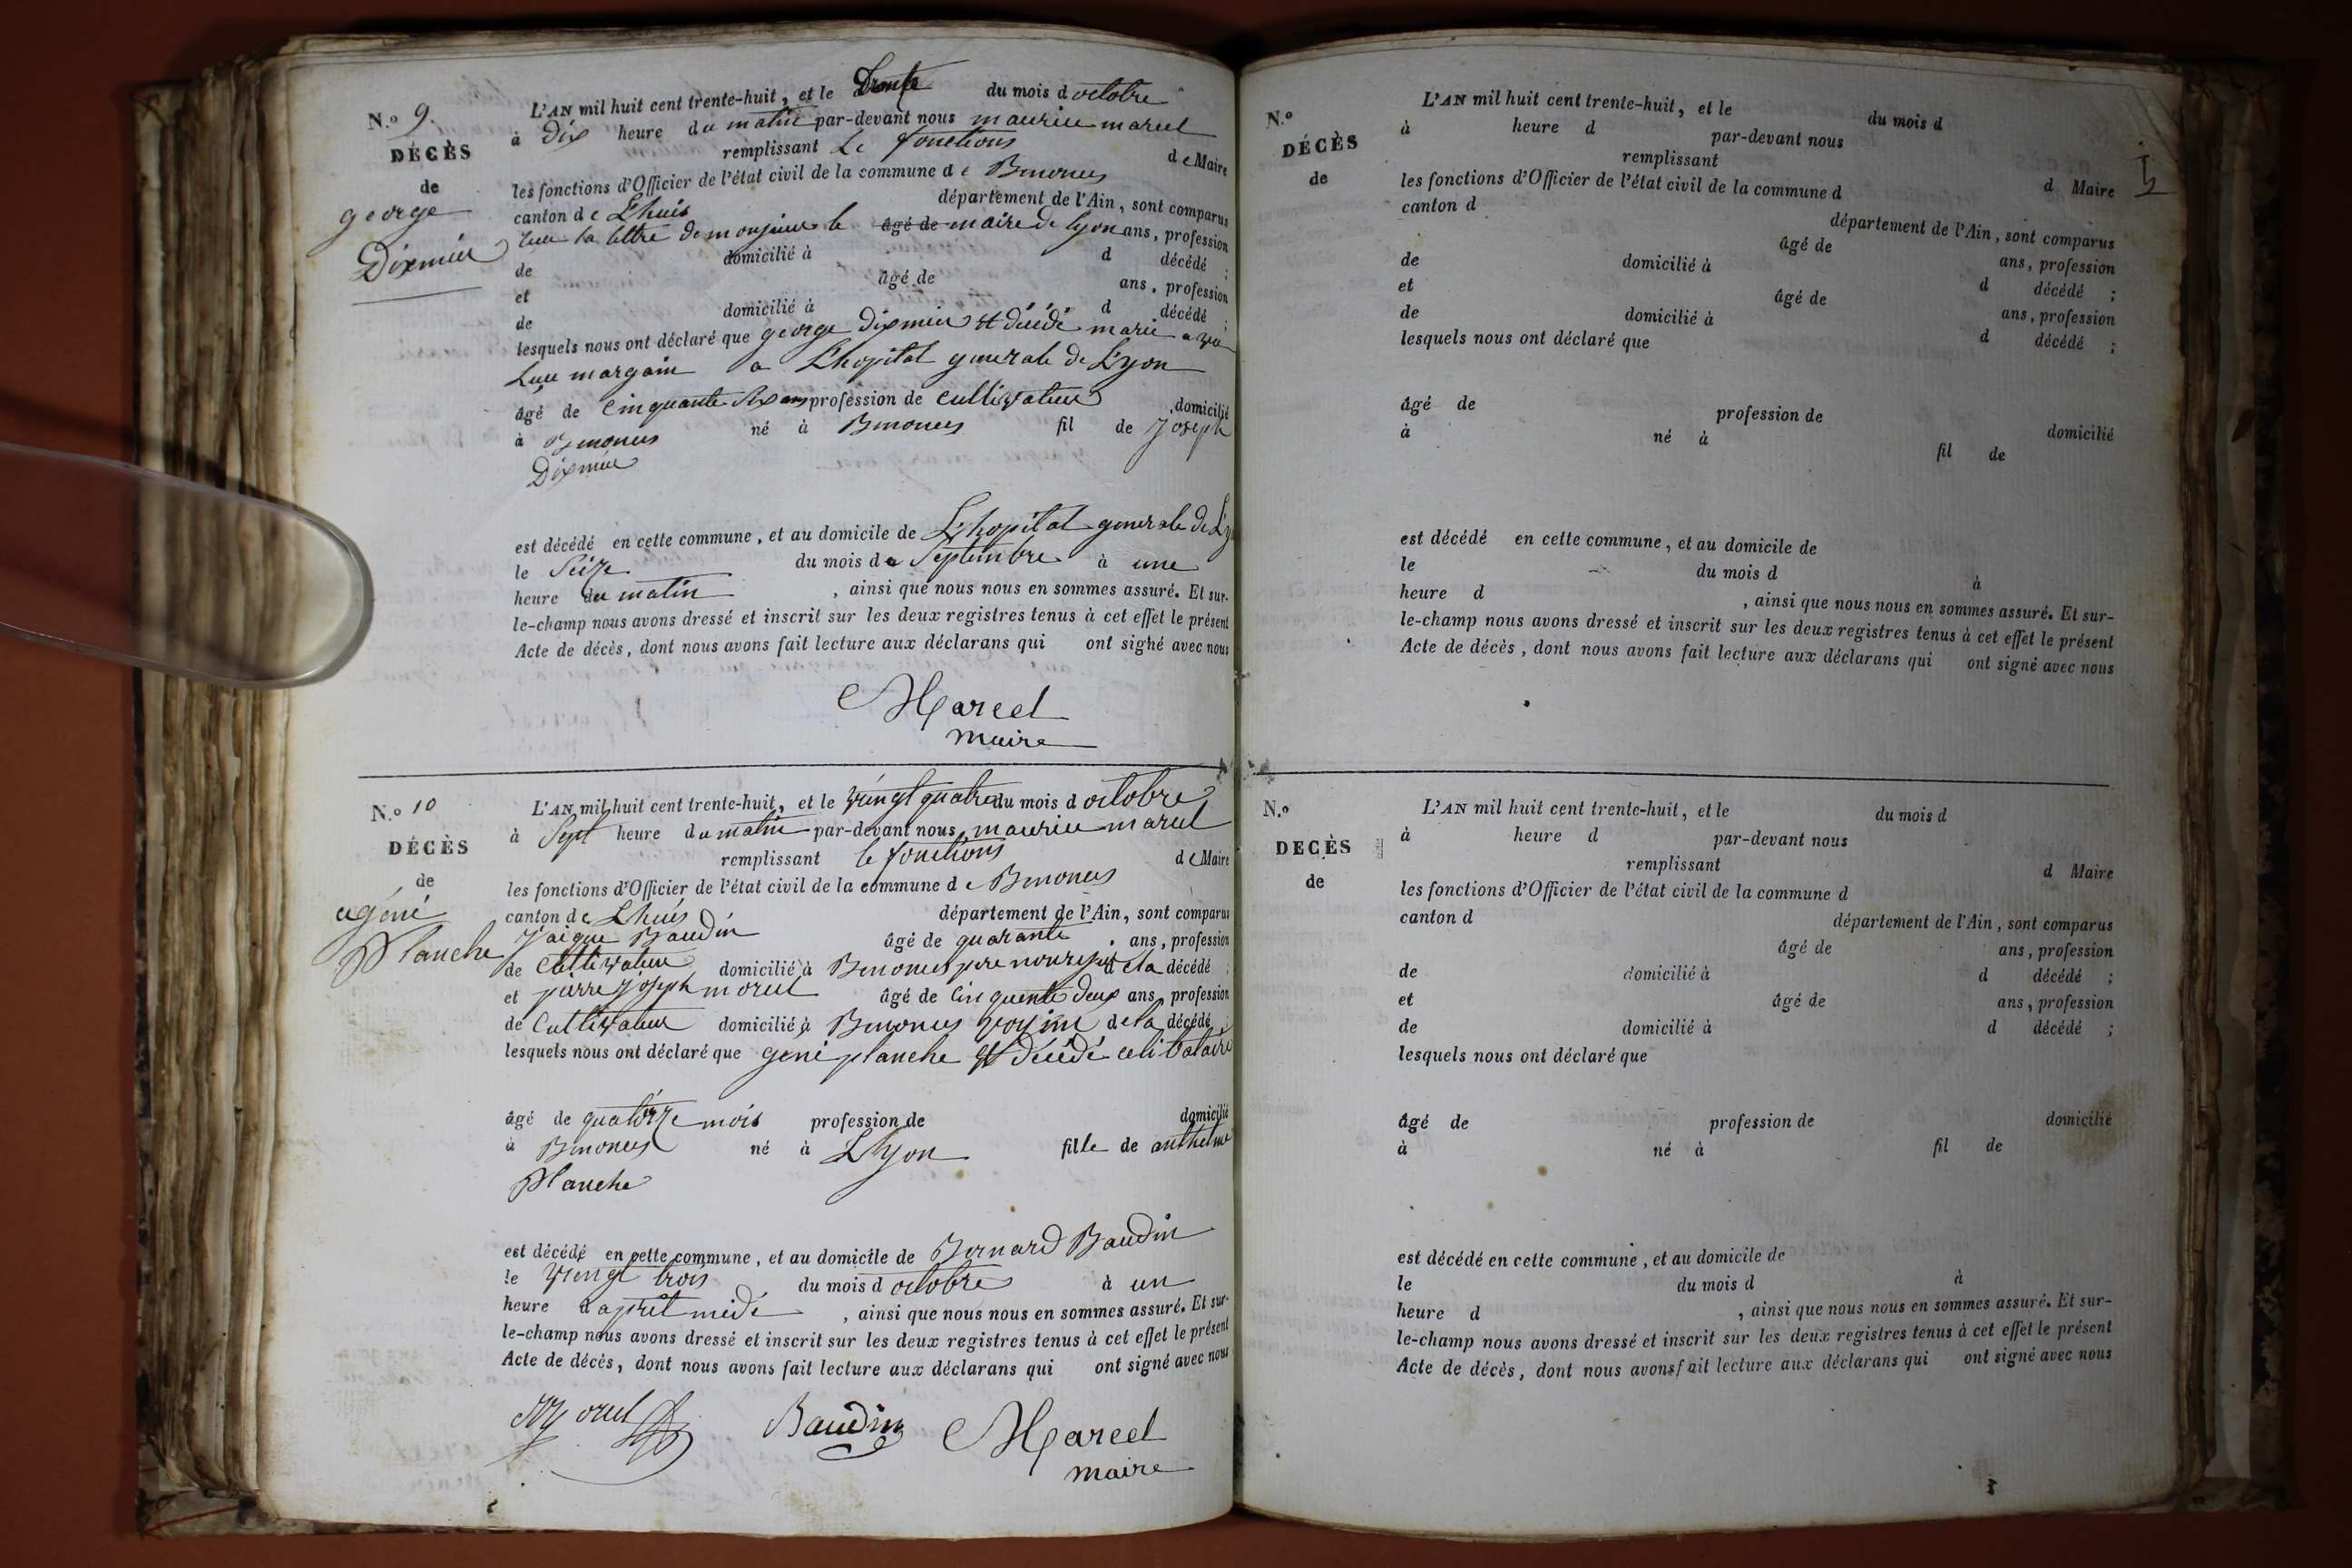 N.o 9.
DÉCÈS
de
george
Dixmier
L'AN mil huit cent trente-huit, et le trente du mois d octobre
à dix heure du matin par-devant nous maurice marcel
remplissant le fonctions de Maire
les fonctions d'Officier de l'état civil de la commune de
canton de Lhuis département de l'Ain, sont comparus
la lettre de monsieur le âgé de maire de lyon ans, profession
de domicilié à d décédé ;
et âgé de ans, profession
de domicilié à d décédé ;
lesquels nous ont déclaré que george dixmier et décédé marié a
margain a L'hopital generale de Lyon
âgé de cinquante six ans profession de cultivateur domicilié
à né à fil de Joseph
Dixmier
est décédé en cette commune, et au domicile de L'hopital generale de
le Seize du mois de Septembre à une
heure du matin, ainsi que nous nous en sommes assuré. Et sur-
le-champ nous avons dressé et inscrit sur les deux registres tenus à cet effet le présent
Acte de décès, dont nous avons fait lecture aux déclarans qui ont signé avec nous
Marcel
maire
N.o 10
DÉCÈS
de
Planche
L'AN mil huit cent trente-huit, et le vingt quatre du mois d octobre
à Sept heure du matin par-devant nous maurice marcel
remplissant le fonctions de Maire
les fonctions d'Officier de l'état civil de la commune de
canton de Lhuis département de l'Ain, sont comparus
Jaique Baudin âgé de quarante ans, profession
de Cultivateur domicilié à pere de la décédé ;
et pierre joseph morel âgé de cinquente deux ans, profession
de Cultivateur domicilié à voysin de la décédé ;
lesquels nous ont déclaré que geni planche et décédé celibataire
âgé de quatorze mois profession de domicilié
à né à Lyon fille de anthelme
Planche
est décédé en cette commune, et au domicile de Bernard Baudin
le vingt trois du mois d octobre à un
heure d aprêt midi, ainsi que nous nous en sommes assuré. Et sur-
le-champ nous avons dressé et inscrit sur les deux registres tenus à cet effet le présent
Acte de décès, dont nous avons fait lecture aux déclarans qui ont signé avec nous
Morel Baudin Marcel
maire
N.o
DÉCÈS
de
L'AN mil huit cent trente-huit, et le du mois d
à heure d par-devant nous
remplissant d Maire
les fonctions d'Officier de l'état civil de la commune d
canton d département de l'Ain, sont comparus
âgé de ans, profession
de domicilié à d décédé ;
et âgé de ans, profession
de domicilié à d décédé ;
lesquels nous ont déclaré que
âgé de profession de domicilié
à né à fil de
est décédé en cette commune, et au domicile de
le du mois d à
heure d , ainsi que nous nous en sommes assuré. Et sur-
le-champ nous avons dressé et inscrit sur les deux registres tenus à cet effet le présent
Acte de décès, dont nous avons fait lecture aux déclarans qui ont signé avec nous
N.o
DECÈS
de
L'AN mil huit cent trente-huit, et le du mois d
à heure d par-devant nous
remplissant d Maire
les fonctions d'Officier de l'état civil de la commune d
canton d département de l'Ain, sont comparus
âgé de ans, profession
de domicilié à d décédé ;
et âgé de ans, profession
de domicilié à d décédé ;
lesquels nous ont déclaré que
âgé de profession de domicilié
à né à fil de
est décédé en cette commune, et au domicile de
le du mois d à
heure d , ainsi que nous nous en sommes assuré. Et sur-
le-champ nous avons dressé et inscrit sur les deux registres tenus à cet effet le présent
Acte de décès, dont nous avons fait lecture aux déclarans qui ont signé avec nous